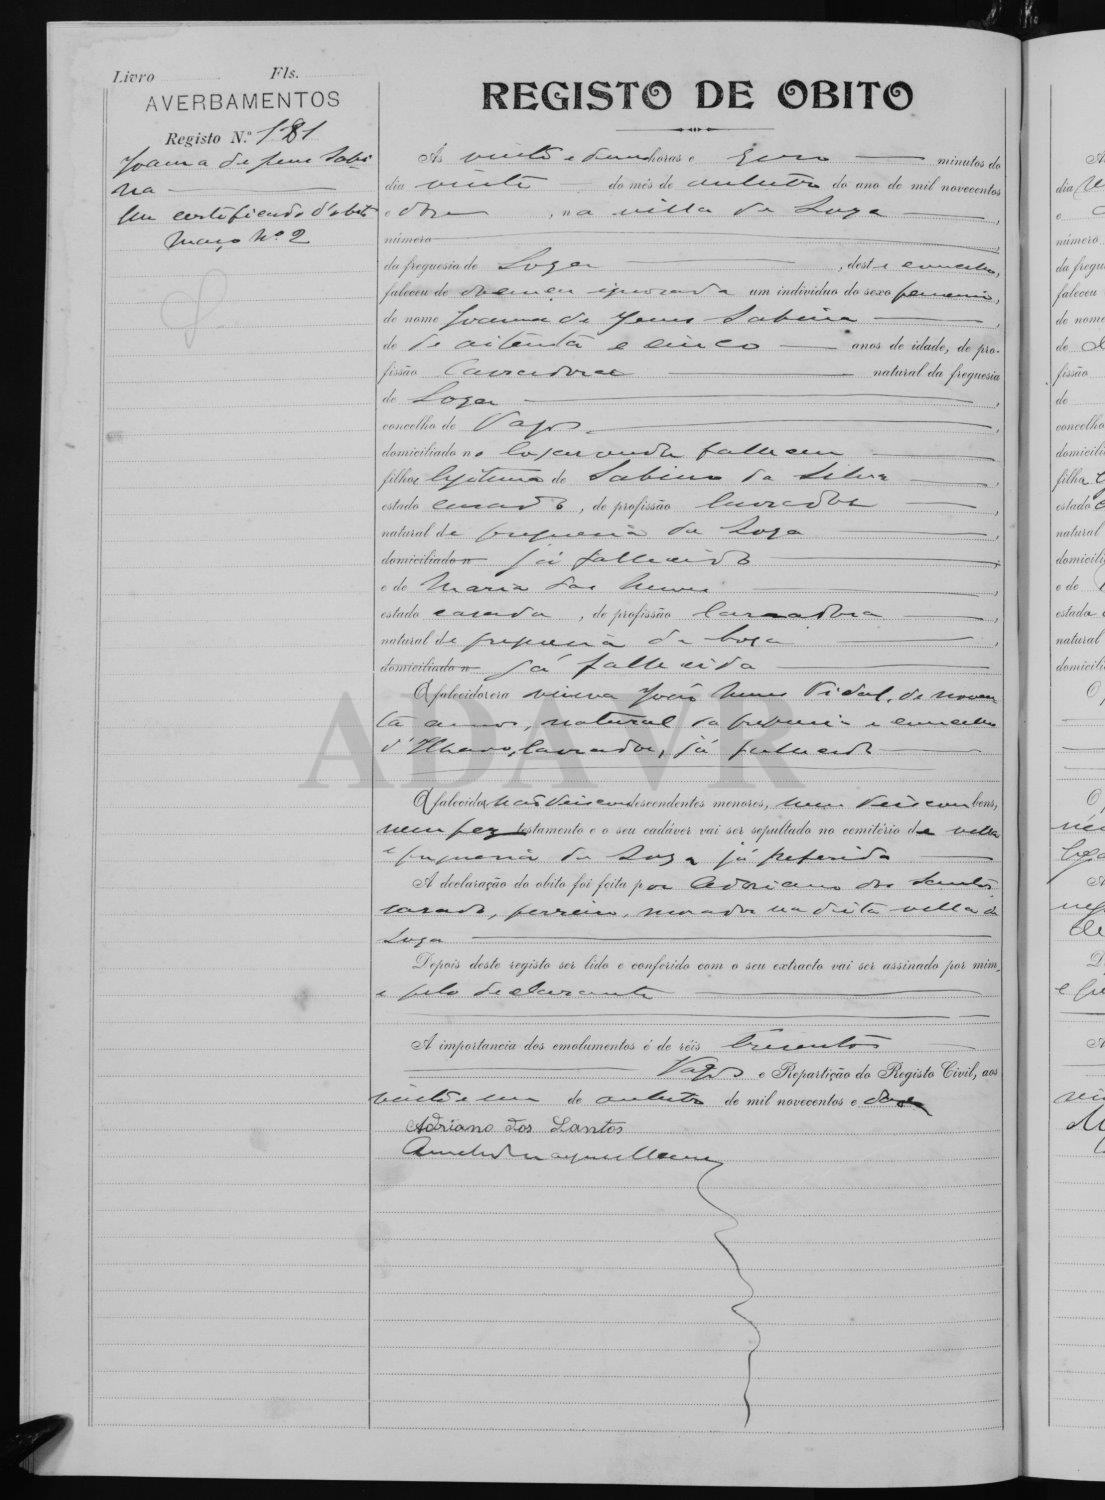 Livro Fls.
AVERBAMENTOS
Registo N.º 181
Joanna de Jesus Sabi-
na
Um certificado d'obito
Maço Nº 2
REGISTO DE OBITO
Ás vinte e duas horas e zero minutos do
dia vinte do mês de outubro do ano de mil novecentos
e doze, na villa de Soza,
número
da freguesia de Soza, deste concelho,
faleceu de doença ignorada um individuo do sexo femenino,
de nome Joanna de Jesus Sabina,
de de oitenta e cinco anos de idade, de pro-
fissão lavradora natural da freguesia
de Soza,
concelho de Vagos,
domiciliado no lugar onde falleceu
filha legitima de Sabino da Silva,
estado casado, de profissão lavrador,
natural da freguesia de Soza,
domiciliado n já fallecido
e de Maria das Neves,
estado casada, de profissão lavradora,
natural da freguesia de Soza,
domiciliado n já fallecida
O falecido era viuva João Nunes Vidal, de noven-
ta annos, natural da freguesia e concelho
d'Ilhavo, lavrador, já fallecido
O falecido não deixou descendentes menores, nem deixou bens,
nem fez testamento e o seu cadáver vai ser sepultado no cemitério da villa
e freguesia de Soza já referida
A declaração do obito foi feita por Adriano dos Santos
casado, ferreiro, morador na dita villa de
Soza
Depois deste registo ser lido e conferido com o seu extracto vai ser assinado por mim,
e pelo declarante
A importancia dos emolumentos é de réis trezentos
Vagos e Repartição do Registo Civil, aos
vinte e um de outubro de mil novecentos e doze
Adriano dos Santos
ADAVR